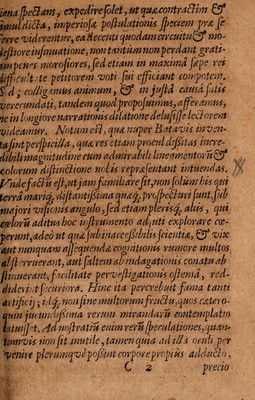 iena spectant, expedire solet, ut quæ contractim &
imul dicta, imperiosæ postulationis speciem præ se
erre viderentur, ea decenti quodam circuitu & mo-
destiore insinuatione, non tantum non perdant grati-
impenes morosiores, sed etiam in maxima sæpe rei
difficult te petitorem voti sui efficiant compotem.
S d; collig mus animum, & in justâ causâ satis
verecundati, tandem quod proposuimus, afferamus,
ne in longiore narrationis dilatione delusisse lectorem
videamur. Notum est, quæ nuper Batavis inven-
ta sint perspicilla, quæ res etiam procul dissitas incre
dibili magnitudine cum admirabili lineamentorū &
colorum distinctione nobis repræsentant intuendas.
Vnde factū est, ut jam familiare sit, non solum his qui
terrâ mariq; distantissima quæq; prospecturi sunt, sub
majori visionis angulo, sed etiam plerisq; aliis, qui
cœlorū aditus hoc instrumento adeunt explorare cœ-
perunt, adeò ut quâ sub inaccessibilis scientiæ, & vix
aut nunquam assequendæ cognitionis rumore multos
abst rruerant, aut saltem ab indagationis conatu ab-
stinuerant, facilitate pervestigationis ostensâ, red-
diderint securiora. Hinc ita percrebuit fama tanti
artificij; idq; non sine multorum fructu, quos cætero-
quin jucundissima rerum mirandarū contemplatio
latuisset. Ad nostratiū enim rerū speculationes, quan-
tumvis non sit inutile, tamen quia ad illa oculi per
venire plerumque possint corpore propius adducto,
C 2 precio